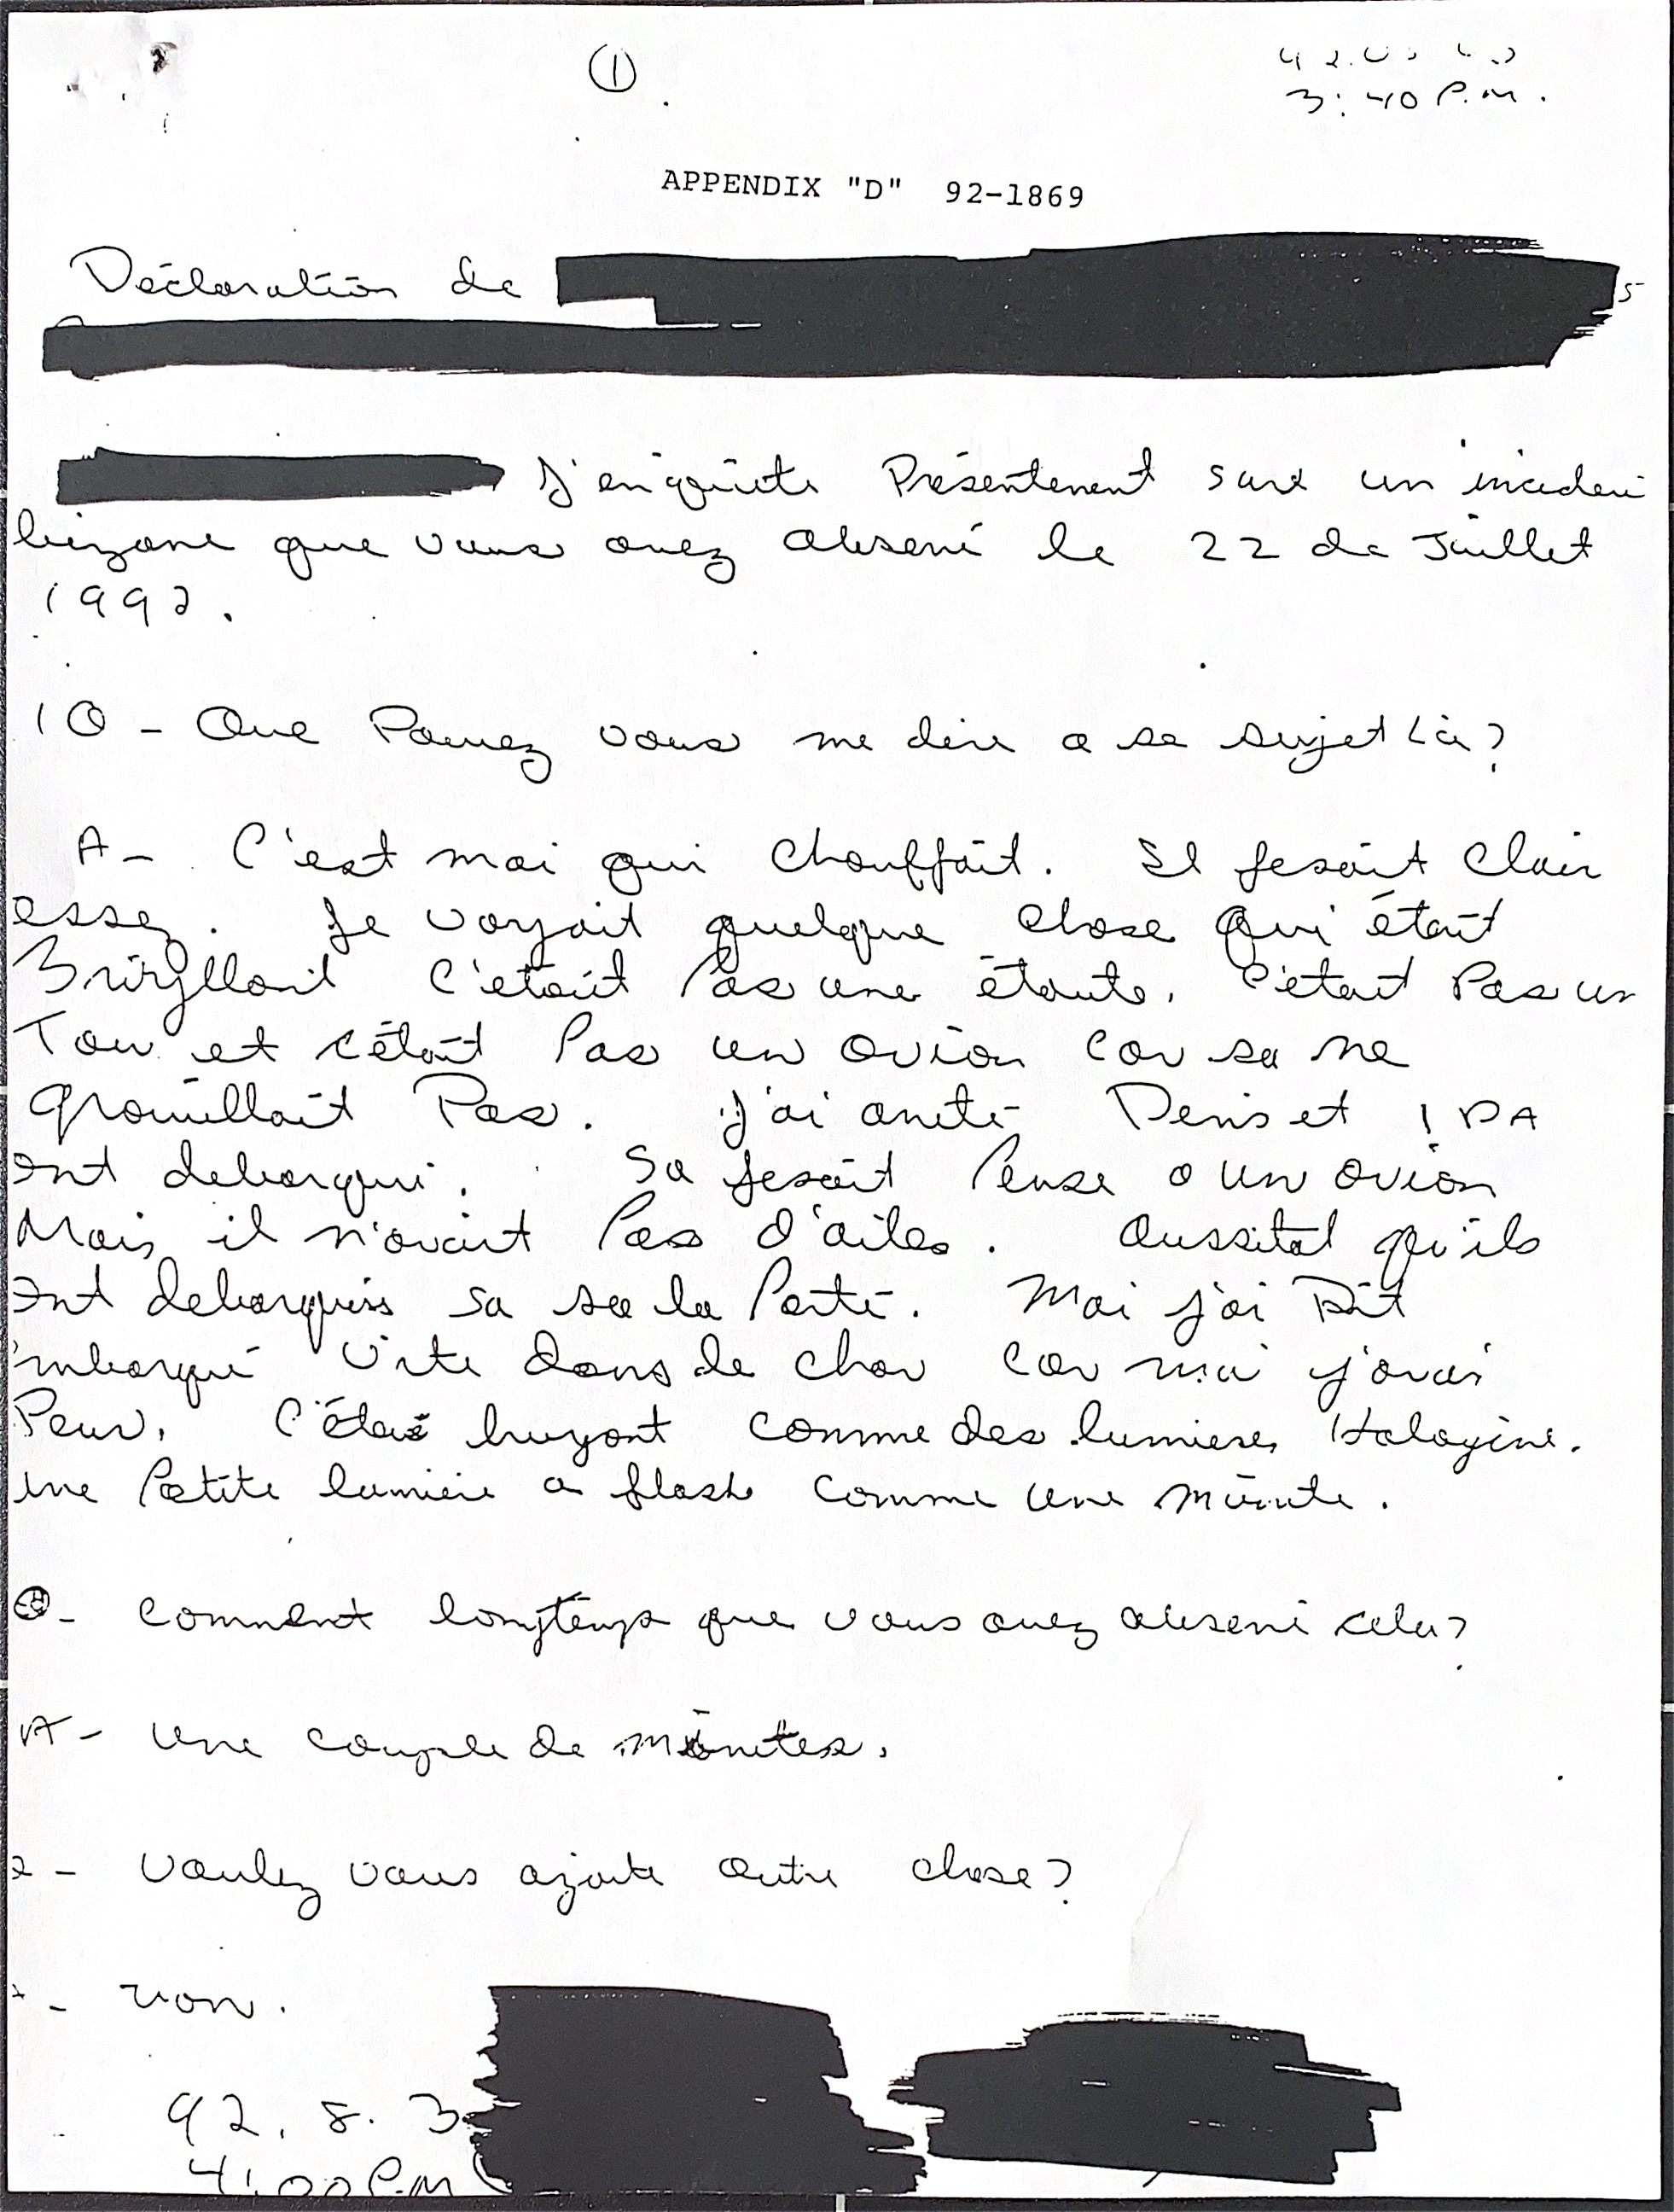 ①
3:40 P.M.
APPENDIX "D" 92-1869
Déclaration de
J'enquête Présentement sur un incident
bizare que vous avez observé le 22 de Juillet
1992.
1Q - Que Pouvez vous me dire a se sujet Là?
A - C'est moi qui chauffait. Il fesait Clair
essez. Je voyait quelque chose qui était
Brillait C'était Pas une étoile. C'était Pas un
Tour et c'était Pas un avion car sa ne
grouillait Pas. J'ai arrêté Denis et IDA
ont debarqué. Sa fesait Pense a un avion
Mais il n'avait Pas d'ailes. Aussitôt qu'ils
ont debarqués sa sa la Parti. Moi j'ai Dit
embarqué Vite dans le char car moi j'avais
Peur. C'était bruyant comme des lumieres Halogène.
une Petite lumière a flash comme une minute.
Q - Comment longtemps que vous avez observé cela?
A - Une couple de minutes.
- Voulez vous ajouté autre chose?
- non.
92. 8. 3
4:00 P.M